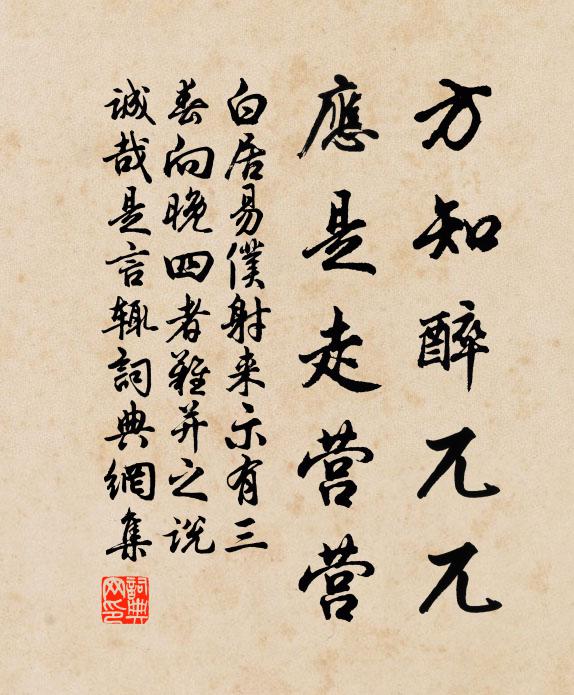 方知醉兀兀
應是走营营
白居易僕射来示有三
春向晚四者難并之说
誠哉是言輒詞典網集
詞典网印